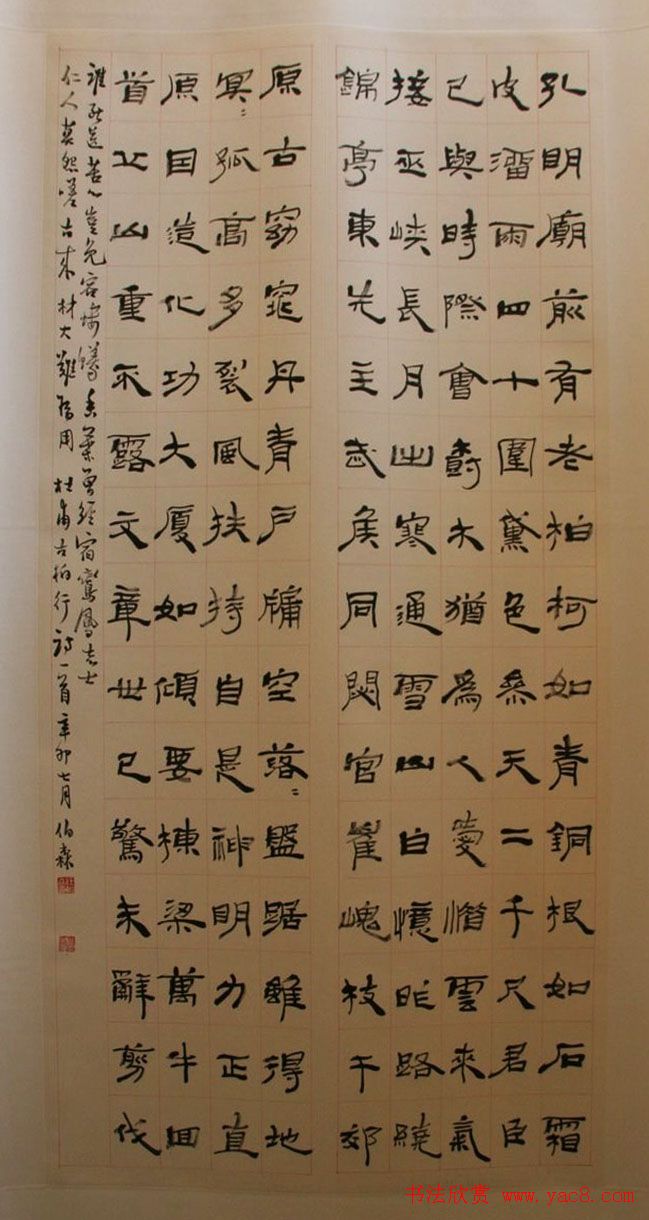 孔明廟前有老柏柯如青銅根如石霜
皮溜雨四十圍黛色參天二千尺君臣
已與時際會樹木猶為人愛惜雲來氣
接巫峽長月出寒通雪山白憶昨路繞
錦亭東先主武侯同閟宮崔嵬枝干郊
原古窈窕丹青戶牖空落〻盤踞雖得地
冥〻孤高多裂風扶持自是神明力正直
原因造化功大廈如傾要棟梁萬牛回
首丘山重不露文章世已驚未辭剪伐
誰能送苦心豈免容螻蟻香葉曾經宿鸞鳳志士
仁人莫怨嗟古來材大難為用 杜甫古柏行詩一首 辛卯七月 伯森
书法欣赏 www.yac8.com